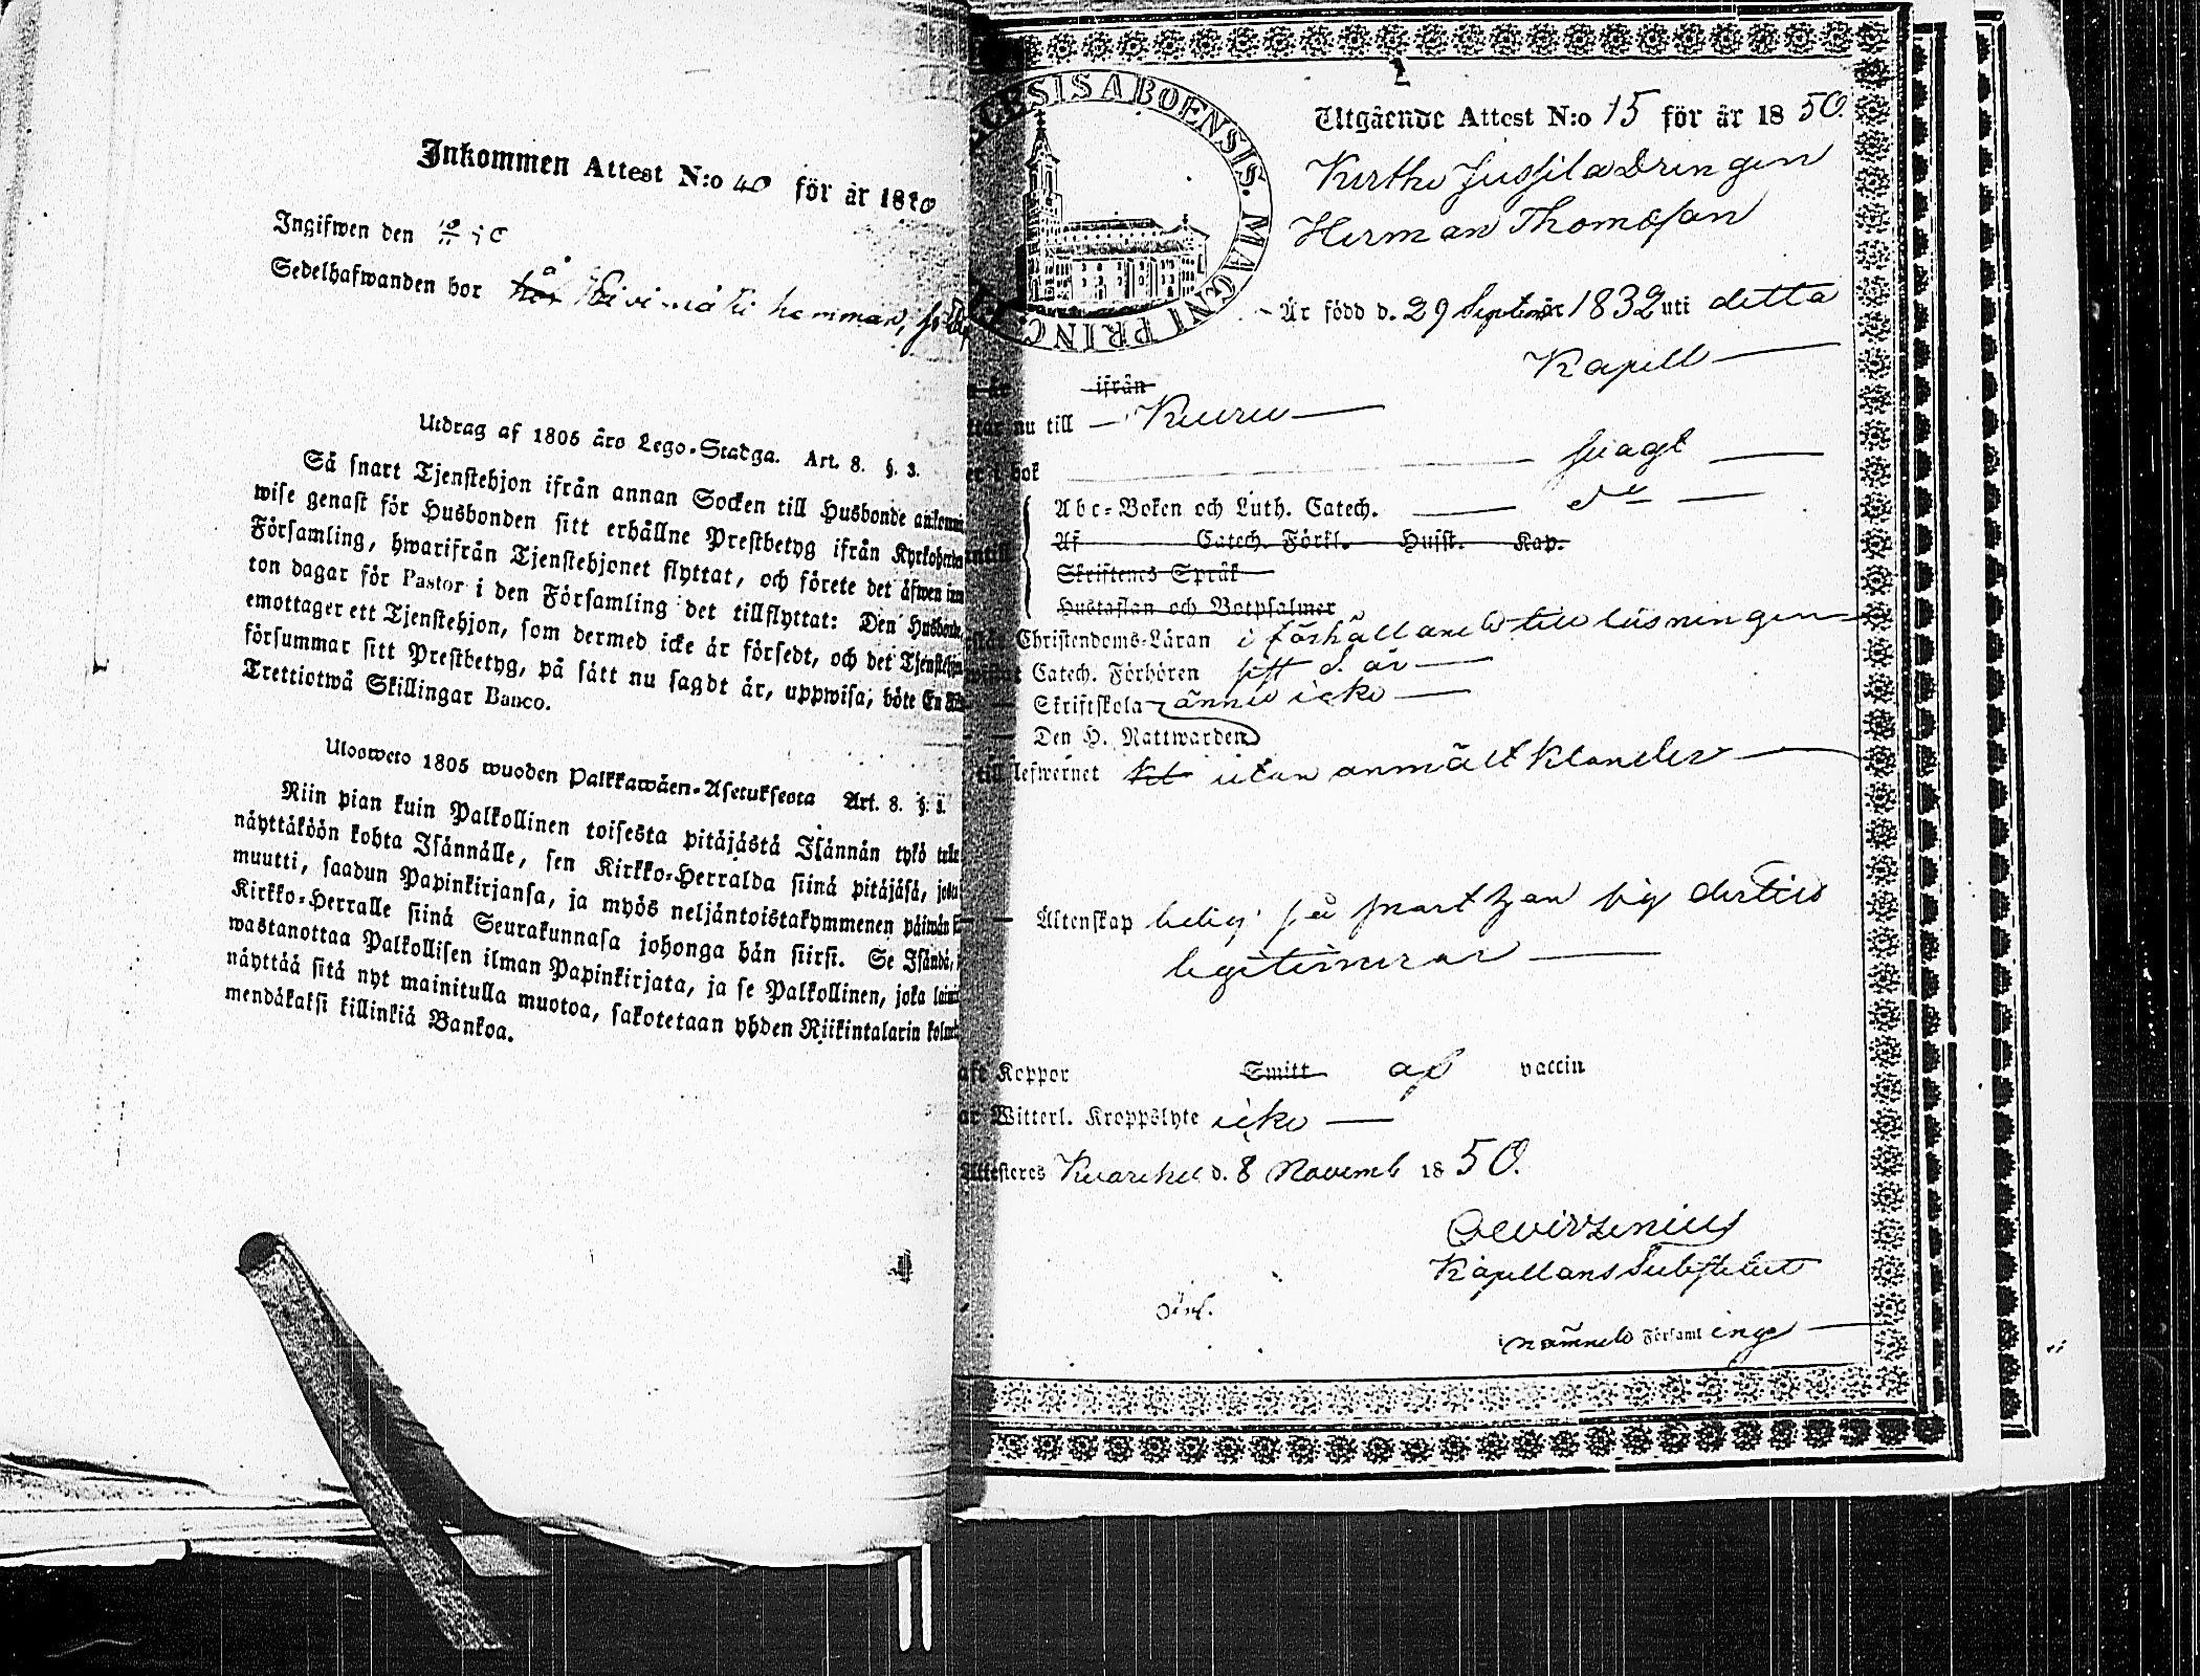 Inkommen Attest N:o 40 för år 18
Ingifwen den
Sedelhafwanden bor å
Utdrag af 1805 års Lego-Stadga. Art. 8. §. 3.
Så snart Tjenstehjon ifrån annan Socken till Husbonde
wise genast för Husbonden sitt erhållne Prestbetyg ifrån
Församling, hwarifrån Tjenstehjonet flyttat, och förete det äfwen
ton dagar för Pastor i den Församling det tillflyttat: Den
emottager ett Tjenstehjon, som dermed icke är försedt, och det
försummar sitt Prestbetyg, på sätt nu sagdt är, uppwisa, böte En
Trettiotwå Skillingar Banco.
Ulosweto 1805 wuoden Palkkawäen-Asetuksesta Art. 8. §.
Niin pian kuin Palkollinen toisesta pitäjästä Isännän tykö
näyttäköön kohta Isännälle, sen Kirkko-Herralda siinä pitäjäsä,
muutti, saadun Papinkirjansa, ja myös neljäntoistakymmenen
Kirkko-Herralle siinä Seurakunnasa johonga hän siirsi. Se
wastanottaa Palkollisen ilman Papinkirjata, ja se Palkollinen, joka
näyttää sitä nyt mainitulla muotoa, sakotetaan yhden Riikintalarin
mendäkaksi killinkiä Bankoa.
CESIS ABOENSIS. MAGNI PRINC
Utgående Attest N:o 15 för år 1850.
Jussila Drengen
Herman Thomasson
Är född d. 29 Septemb år 1832 uti detta
Kapell
ifrån
nu till Kuru
bok svagt
Abc-Boken och Luth. Catech. do
Af Catech. Förkl. Hufst. Kap.
Skriftenes Språk
Hustaflan och Botpsalmer
Christendoms-Läran i förhållande till läsningen
Catech. Förhören sist d. år
Skriftskola ännu icke
Den H. Nattwarden
till lefwernet utan anmält klander
Äktenskap ledig så snart han sig dertill
legitimerar
Koppor Smitt af vaccin
Witterl. Kroppslyte icke
Attesteres d. 8 Novemb 1850.
Kapellans Substitut
i nämnde Församlinge